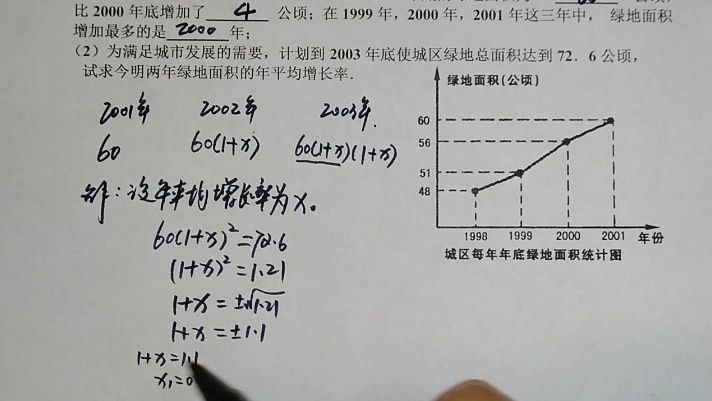 比 2000 年底增加了 4 公顷；在 1999 年，2000 年，2001 年这三年中， 绿地面积
增加最多的是 2000 年；
（2）为满足城市发展的需要，计划到 2003 年底使城区绿地总面积达到 72．6 公顷，
试求今明两年绿地面积的年平均增长率．
2001年 2002年 2003年
60 60(1+x) 60(1+x)(1+x)
解：设年平均增长率为x。
60(1+x)²=72.6
(1+x)²=1.21
1+x=±√1.21
1+x=±1.1
1+x=1.1
x₁=0
绿地面积(公顷)
60
56
51
48
1998 1999 2000 2001 年份
城区每年年底绿地面积统计图